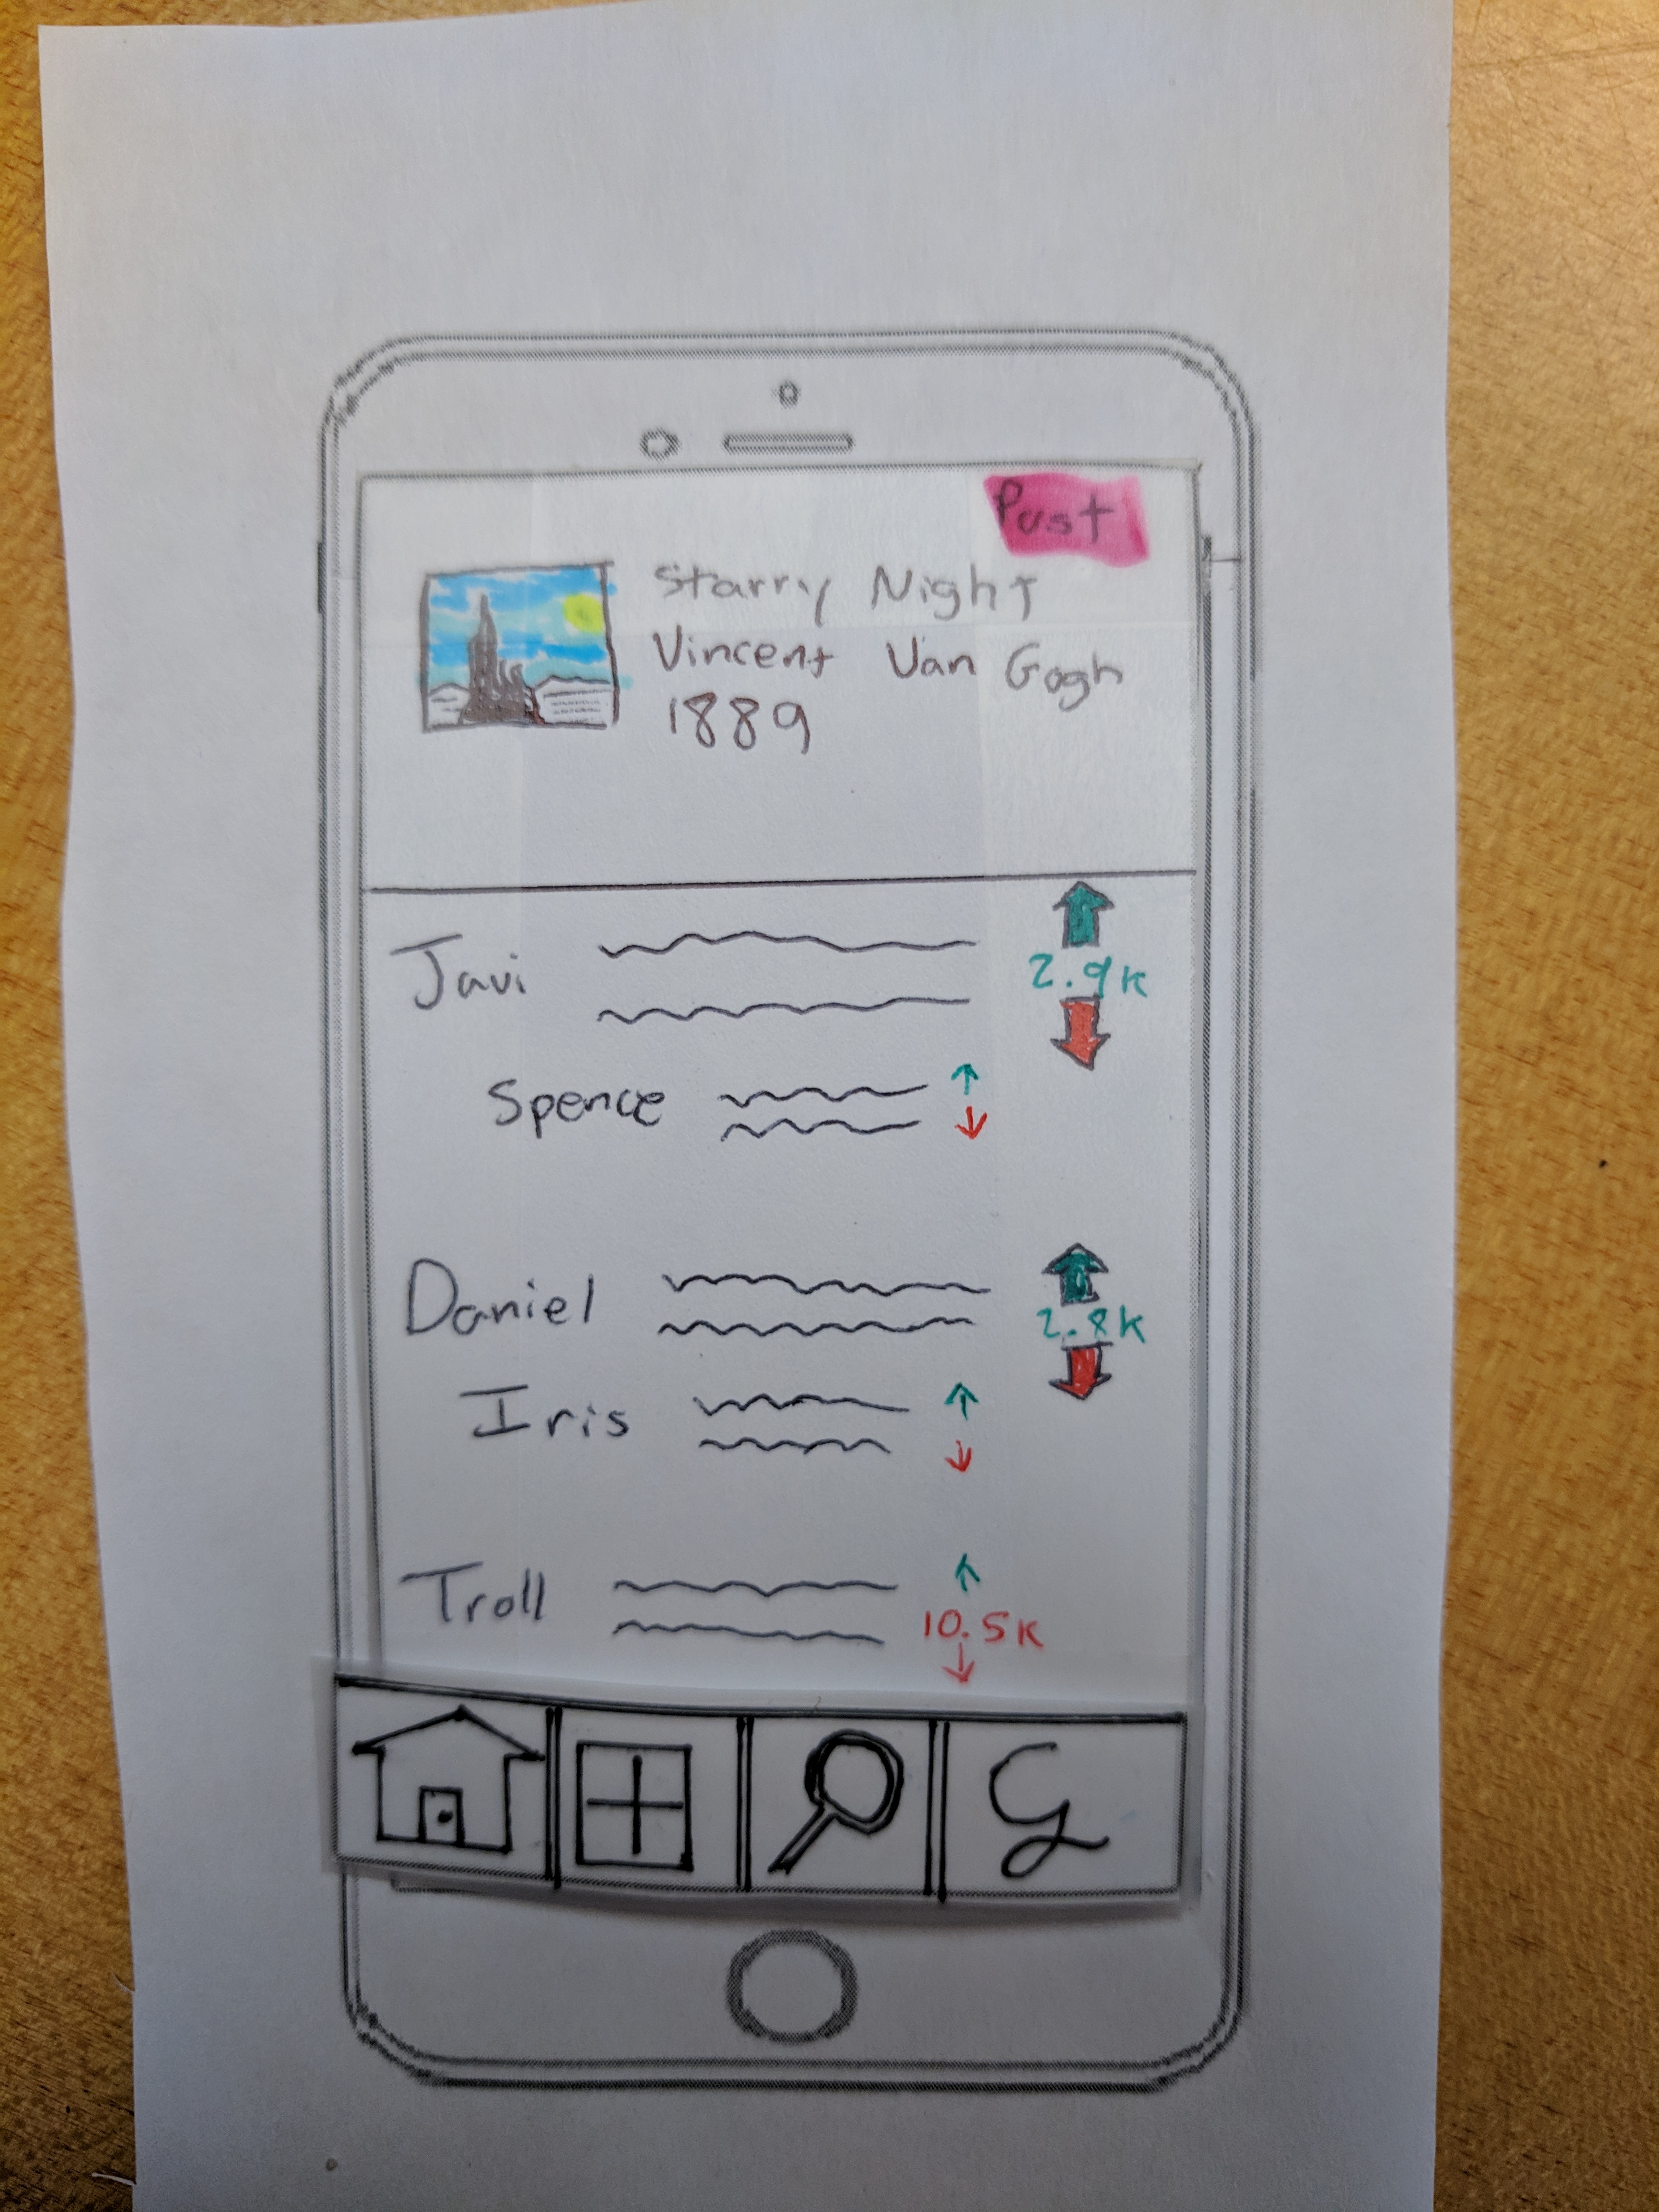 Post
Starry Night
Vincent Van Gogh
1889
Javi
2.9k
Spence
Daniel
2.8k
Iris
Troll
10.5k
G